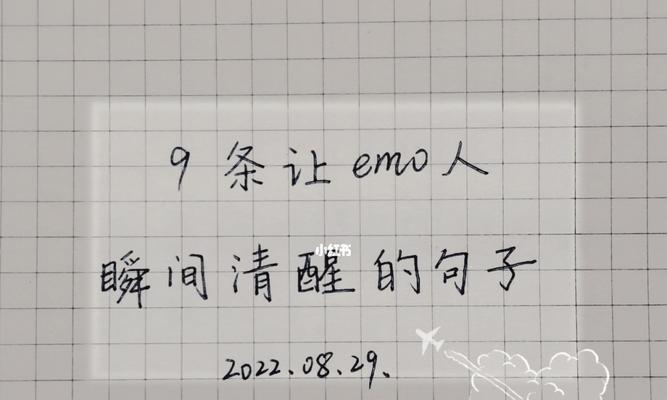 9条让emo人
小红书
瞬间清醒的句子
2022.08.29.